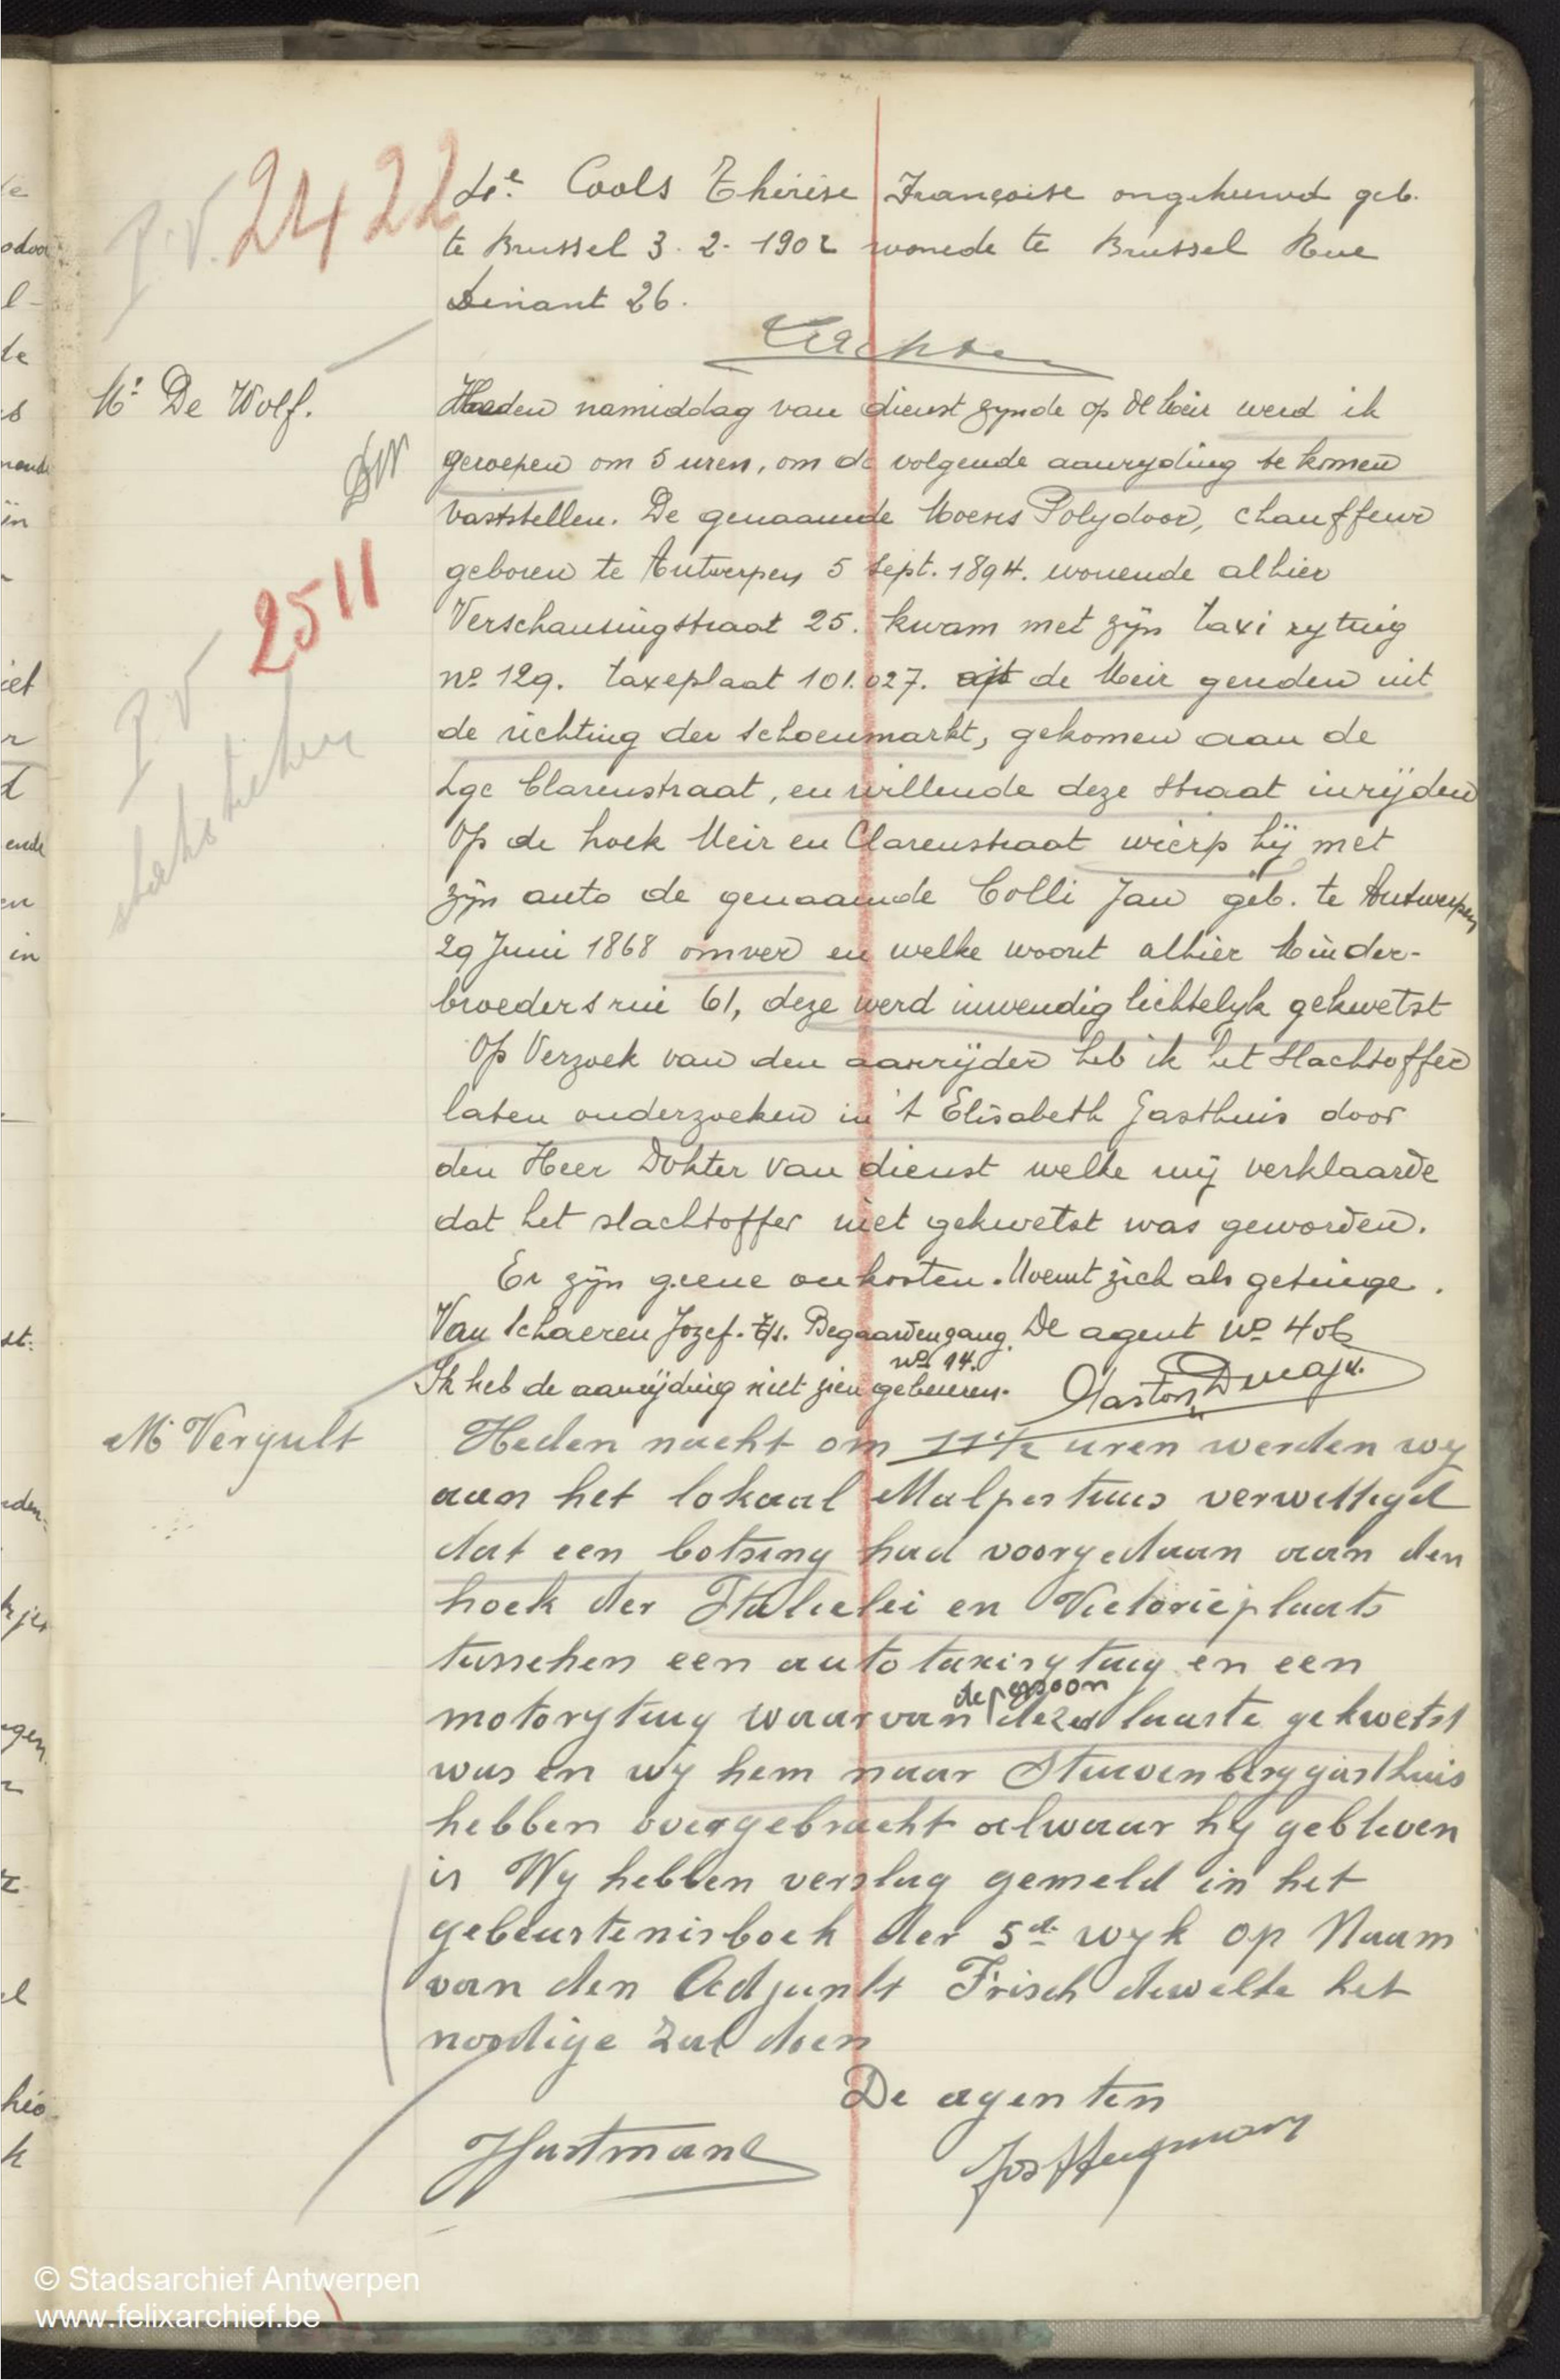 P.V. 2422
de Cools Thérèse Françoise ongehuwd geb.
te Brussel 3. 2. 1902 wonede te Brussel Rue
Dinant 26.
Mr De Wolf.
Heden namiddag van dienst zynde op de Meir werd ik
geroepen om 5 uren, om de volgende aanryding te komen
vaststellen. De genaamde Moens Polydoor, chauffeur
geboren te Antwerpen 5 Sept. 1894. wonende alhier
P.V 2511
Verschansingstraat 25. kwam met zijn taxi rytuig
no 129. taxeplaat 101.027. de Meir gereden uit
de richting der Schoenmarkt, gekomen aan de
Lge Clarenstraat, en willende deze straat inrijden
Op de hoek Meir en Clarenstraat wierp hij met
zijn auto de genaamde Colli Jan geb. te Antwerpen
29 Juni 1868 omver en welke woont alhier Minder-
broedersrui 61, deze werd inwendig lichtelyk gekwetst
Op Verzoek van den aanrijder heb ik het slachtoffer
laten onderzoeken in 't Elisabeth Gasthuis door
den Heer Dokter van dienst welke mij verklaarde
dat het slachtoffer niet gekwetst was geworden.
Er zijn geene onkosten. Noemt zich als getuige.
Van Schaeren Jozef. Begaardengang. De agent No 406
no 14.
Ik heb de aanrijding niet zien gebeuren. Gaston
Mr Vergult
Heden nacht om 11 1/2 uren werden wy
aan het lokaal Malpertuus verwettigd
dat een botsing had voorgedaan aan den
hoek der Italielei en Victorieplaats
tusschen een autotaxirytuig en een
de persoon
motorytuig waarvan deze laaste gekwetst
was en wij hem naar Stuivenberggasthuis
hebben overgebracht alwaar hy gebleven
is Wy hebben verslag gemeld in het
gebeurtenisboek der 5de wyk op Naam
van den Adjunkt Frisch dewelke het
noodige zal doen
De agenten
Hartmans
© Stadsarchief Antwerpen
www.felixarchief.be